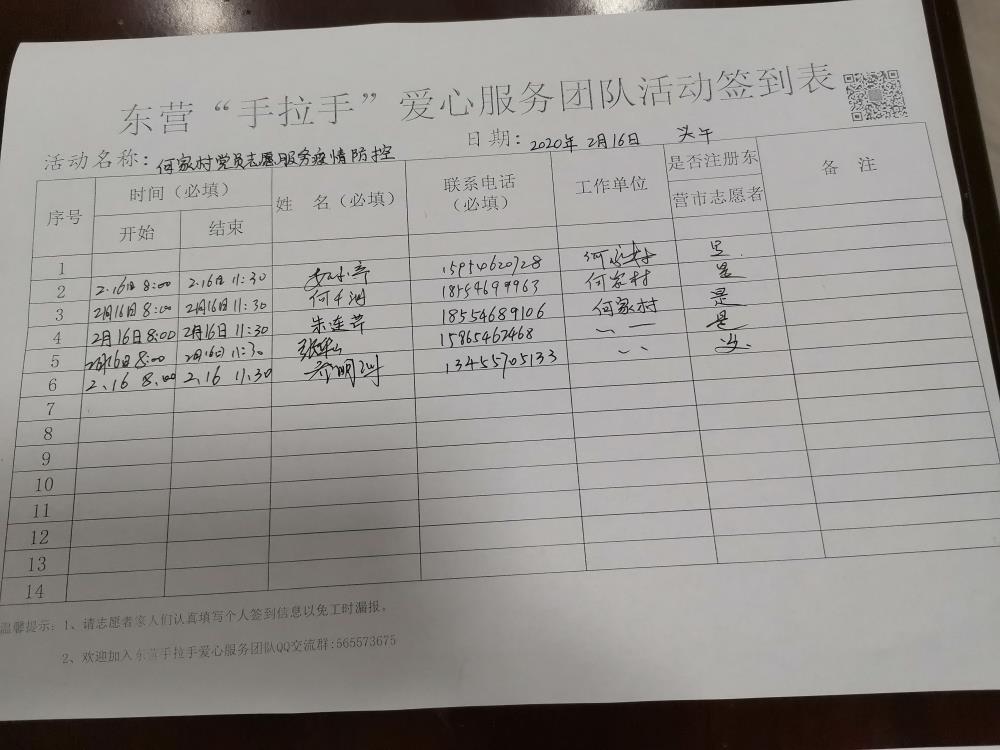 东营“手拉手”爱心服务团队活动签到表
活动名称：何家村党员志愿服务疫情防控 日期：2020年2月16日 头午
序号 时间（必填） 姓 名（必填） 联系电话（必填） 工作单位 是否注册东营市志愿者 备 注
开始 结束
1
2 2.16日 8:00 2.16日 11:30 15954620728 何家村 是
3 2月16日 8:00 2月16日 11:30 18554699963 何家村 是
4 2月16日 8:00 2月16日 11:30 朱连芹 18554689106 何家村 是
5 2月16日 8:00 2月16日 11:30 15865462468 是
6 2.16 8:00 2.16 11:30 13455705133
7
8
9
10
11
12
13
14
温馨提示：1、请志愿者家人们认真填写个人签到信息以免工时漏报。
2、欢迎加入东营手拉手爱心服务团队QQ交流群:565573675